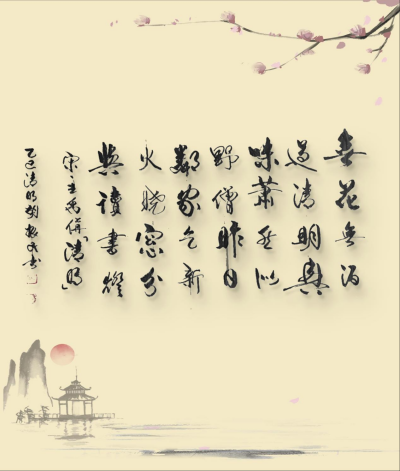 無花無酒
過清明興
味蕭然似
野僧昨日
鄰家乞新
火曉窓分
與讀書燈
宋王禹偁「清明」
乙巳清明胡书